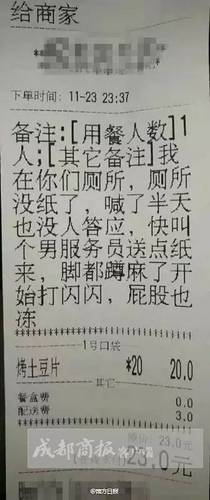 给商家
下单时间: 11-23 23:37
备注:[用餐人数]1
人;[其它备注]我
在你们厕所，厕所
没纸了，喊了半天
也没人答应，快叫
个男服务员送点纸
来，脚都蹲麻了开
始打闪闪，屁股也
冻
1号口袋
烤土豆片 *20 20.0
其它
餐盒费 0.0
配送费 3.0
原价 23.0元
23.0元
成都商报
@南方日报